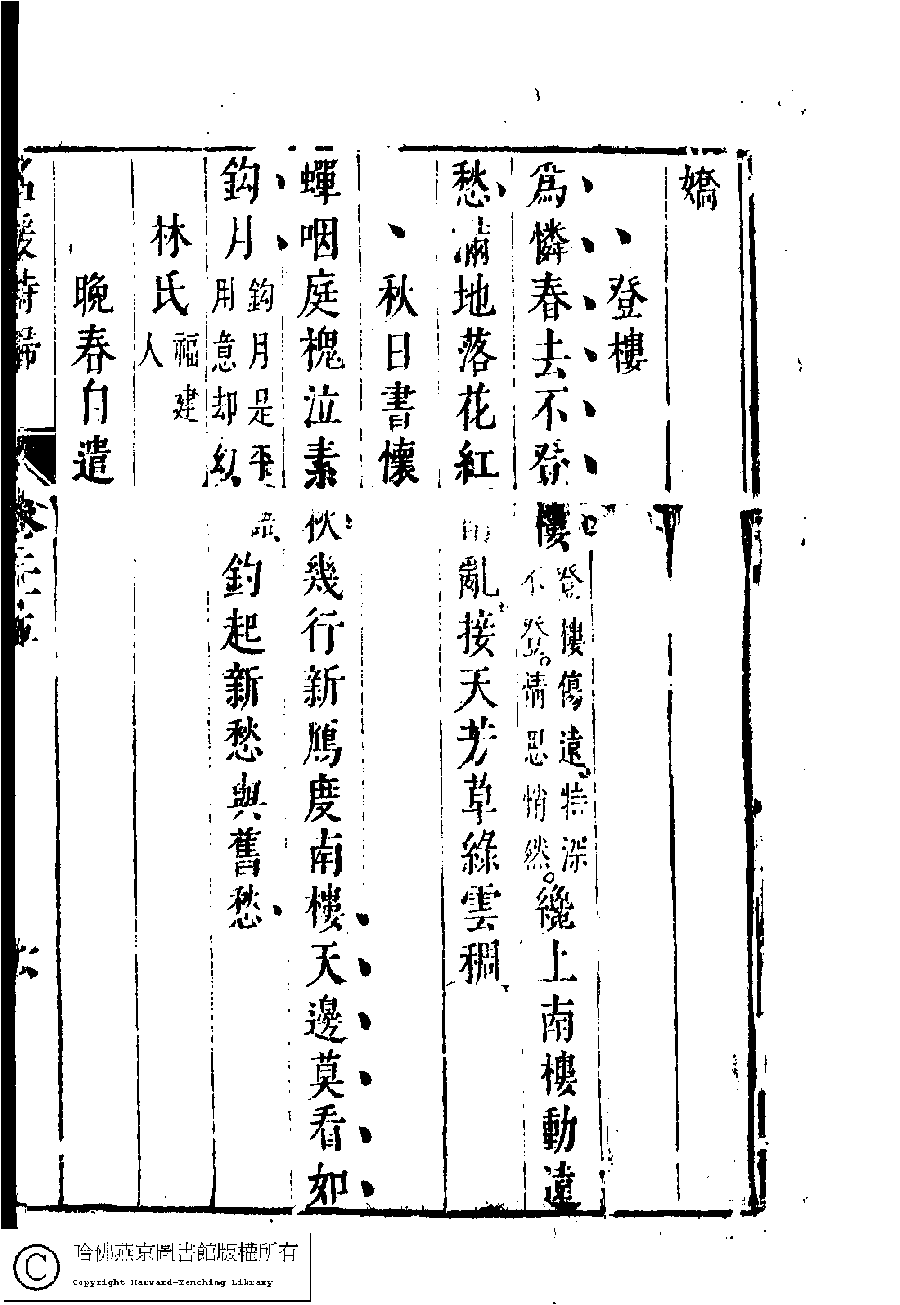 嬌
登樓
為憐春去不登樓登樓傷遠特深不登情思悄然纔上南樓動遠
愁滿地落花紅雨亂接天芳草綠雲稠
秋日書懷
蟬咽庭槐泣素秋幾行新鴈度南樓天邊莫看如
鈎月鈎月是平用意却幻鈎起新愁與舊愁
林氏福建人
晚春自遣
名媛詩歸
卷二十五
六
哈佛燕京圖書館版權所有
Copyright Harvard-Yenching Library